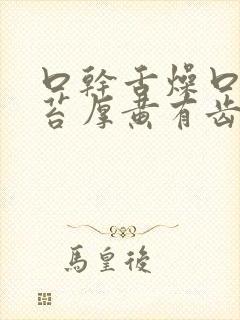 口幹舌燥口
苔厚黄有齿
馬皇後